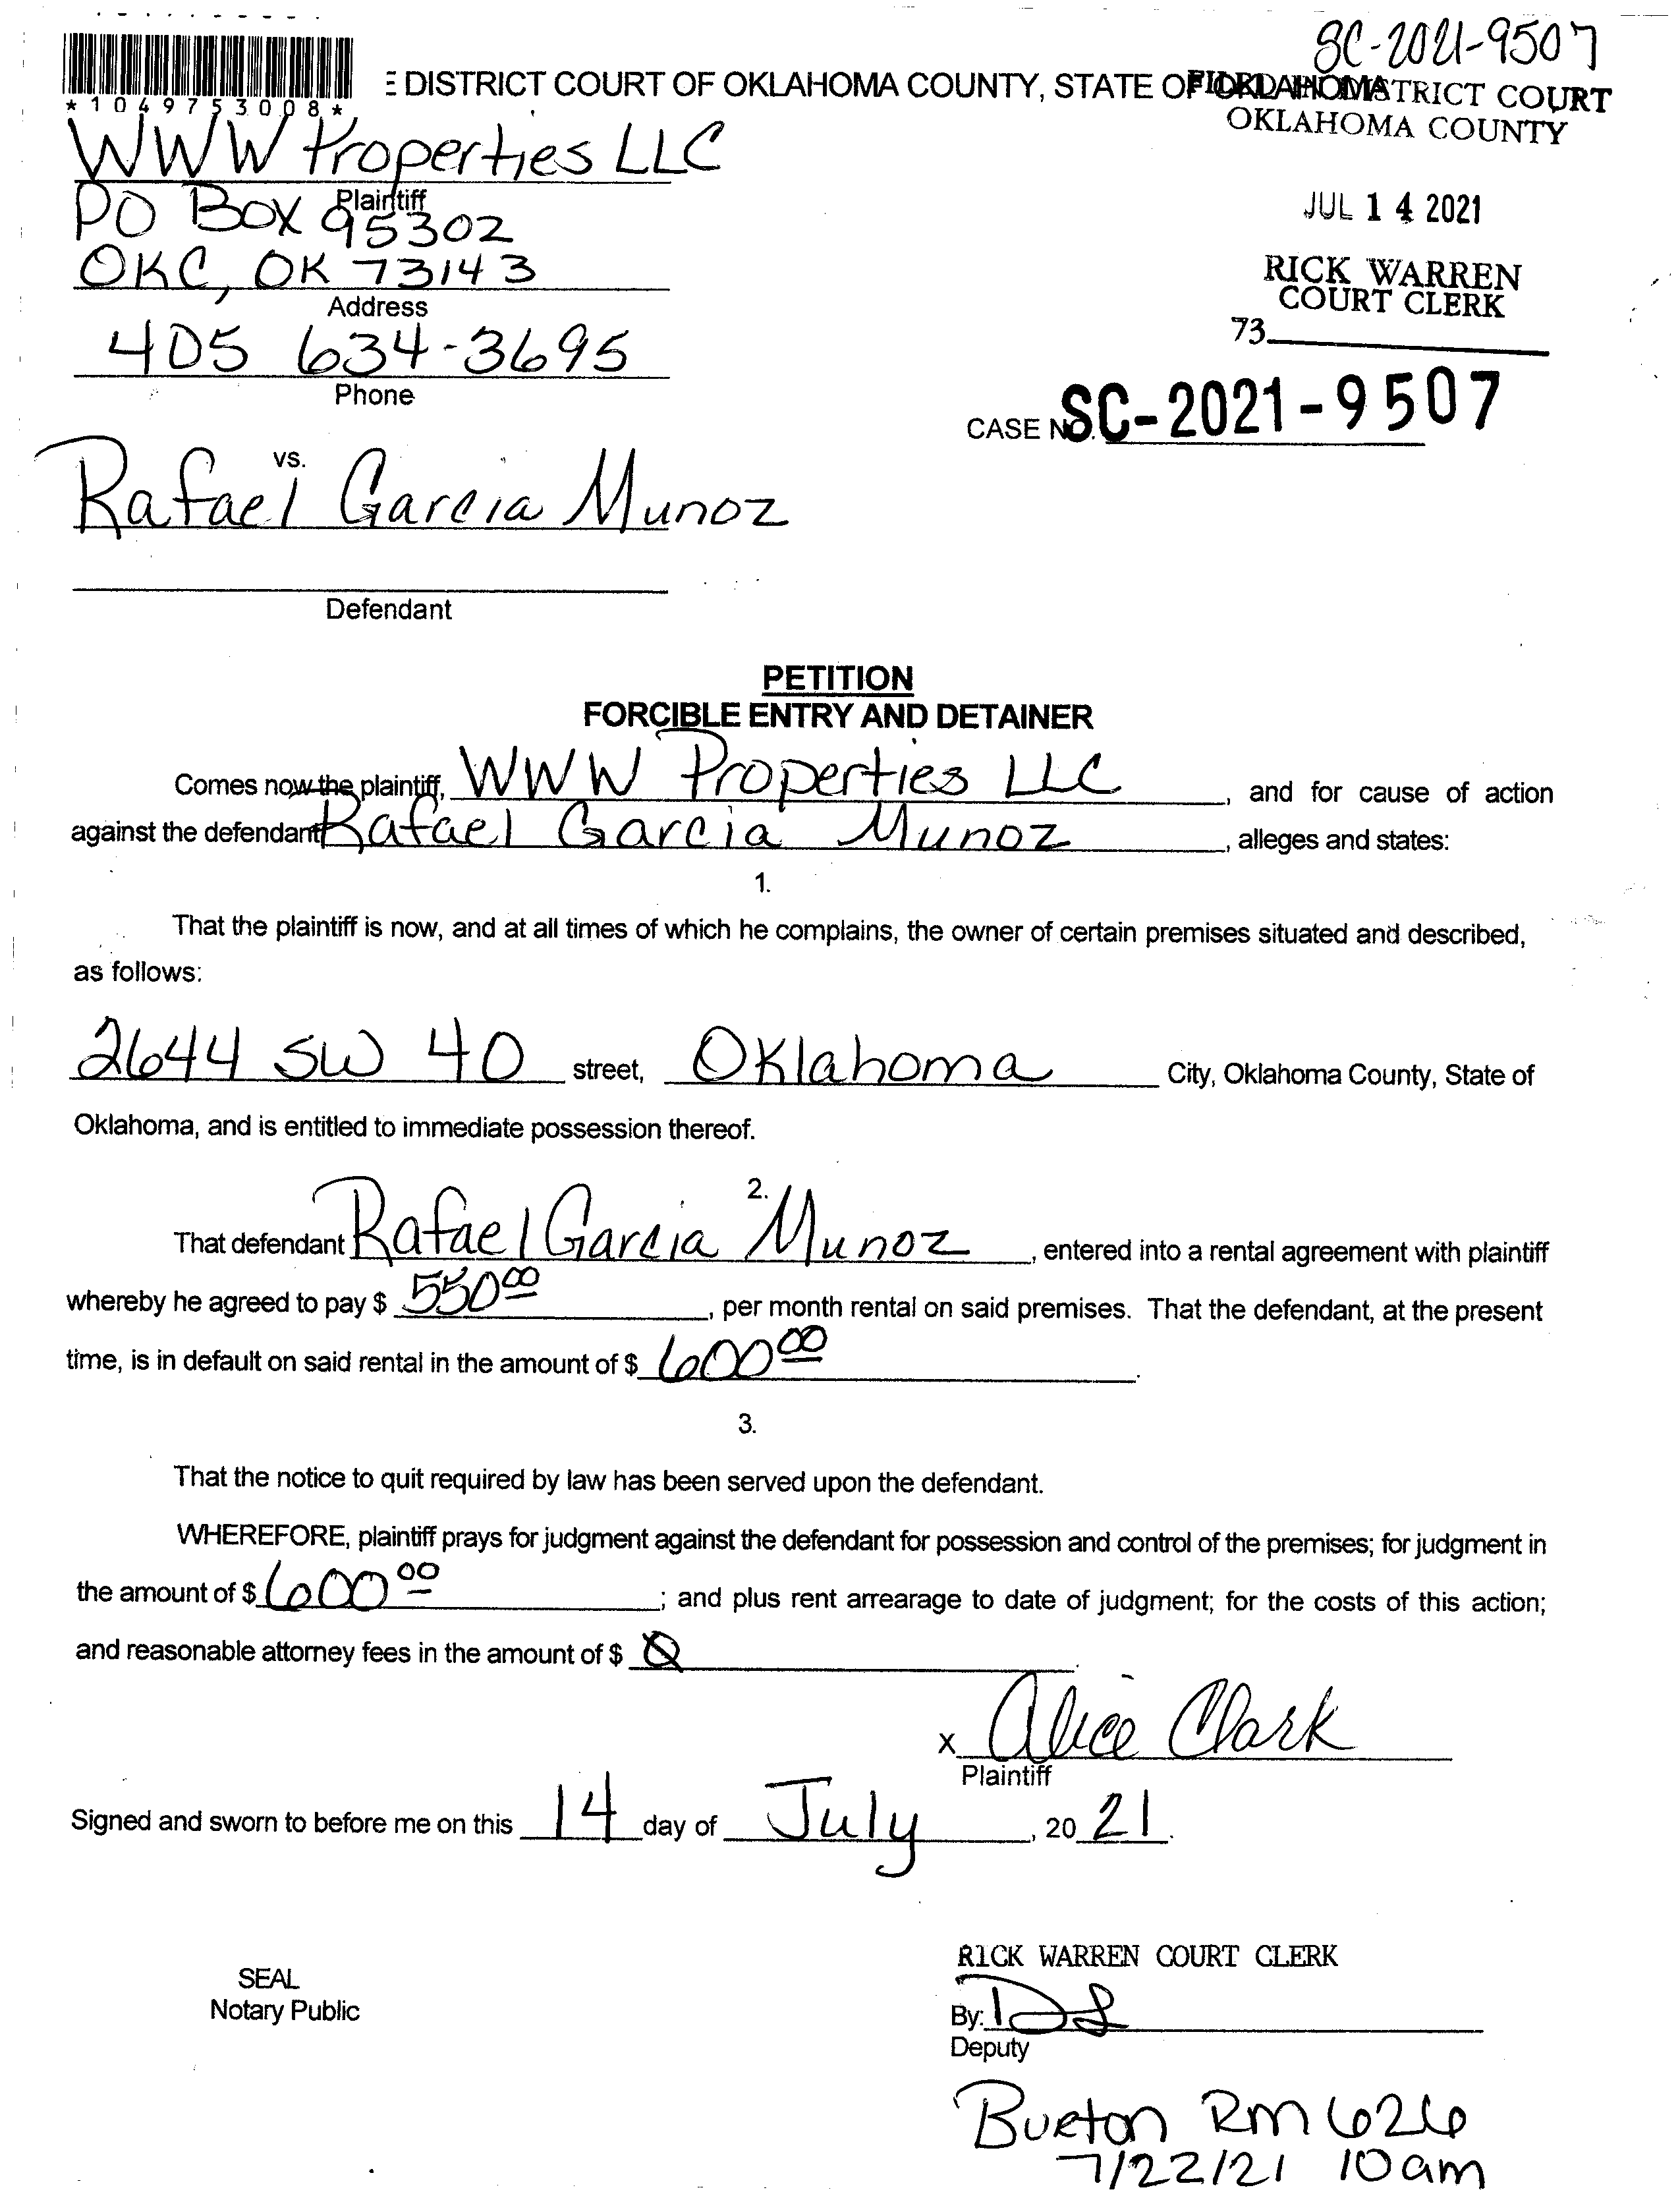 SC-2021-9507
*1049753008*
E DISTRICT COURT OF OKLAHOMA COUNTY, STATE OF OKLAHOMA
FILED IN DISTRICT COURT
OKLAHOMA COUNTY
WWW Properties LLC
Plaintiff
PO Box 95302
JUL 14 2021
OKC, OK 73143
Address
RICK WARREN
COURT CLERK
73
405 634-3695
Phone
CASE NO. SC-2021-9507
vs.
Rafael Garcia Munoz
Defendant
PETITION
FORCIBLE ENTRY AND DETAINER
Comes now the plaintiff, WWW Properties LLC, and for cause of action
against the defendant Rafael Garcia Munoz, alleges and states:
1.
That the plaintiff is now, and at all times of which he complains, the owner of certain premises situated and described,
as follows:
2644 SW 40 street, Oklahoma City, Oklahoma County, State of
Oklahoma, and is entitled to immediate possession thereof.
2.
That defendant Rafael Garcia Munoz, entered into a rental agreement with plaintiff
whereby he agreed to pay $ 550 00, per month rental on said premises. That the defendant, at the present
time, is in default on said rental in the amount of $ 600 00.
3.
That the notice to quit required by law has been served upon the defendant.
WHEREFORE, plaintiff prays for judgment against the defendant for possession and control of the premises; for judgment in
the amount of $ 600 00; and plus rent arrearage to date of judgment; for the costs of this action;
and reasonable attorney fees in the amount of $ Ø.
x Alice Clark
Plaintiff
Signed and sworn to before me on this 14 day of July, 20 21.
RICK WARREN COURT CLERK
SEAL
Notary Public
By:
Deputy
Rm 626
7/22/21 10am